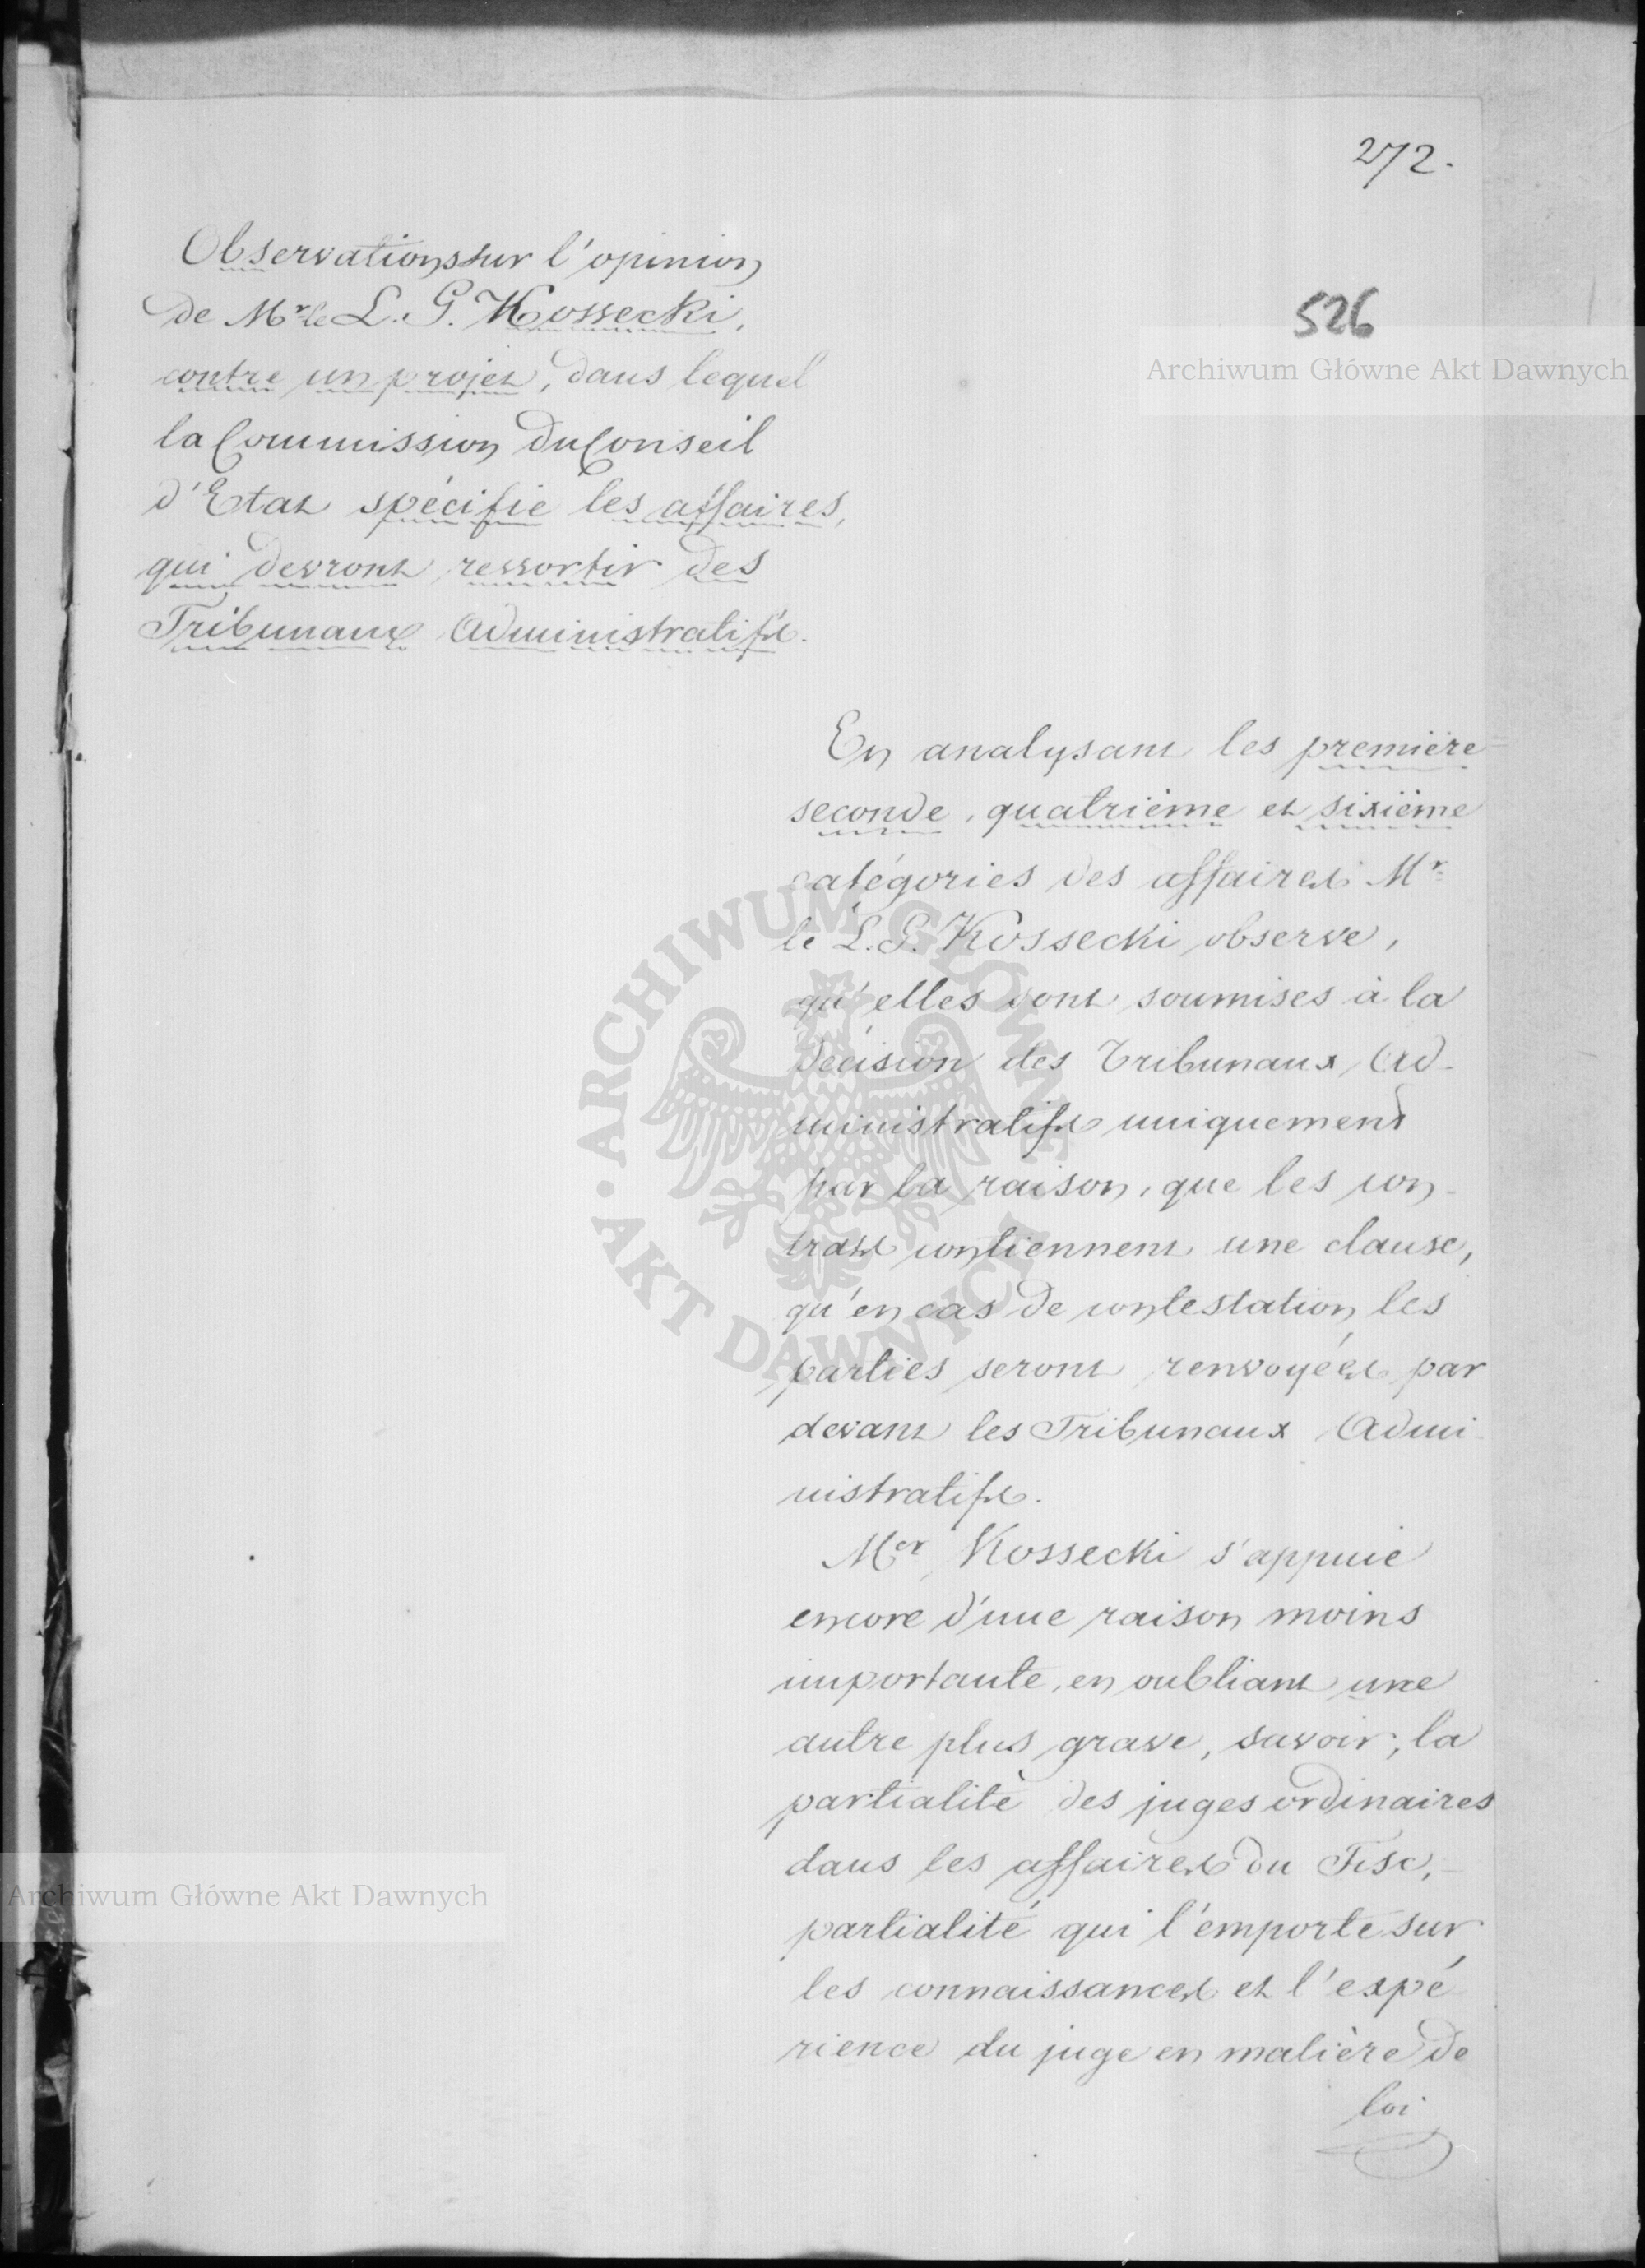 272.
526
Archiwum Główne Akt Dawnych
Observations sur l'opinion
de Mr le L. G. Kossecki,
contre un projet, dans lequel
la Commission du Conseil
d'Etat spécifie les affaires,
qui devront ressortir des
Tribunaux Administratifs.
En analysant les première
seconde, quatrième et sixième
catégories des affaires Mr
le L. G. Kossecki observe,
qu'elles sont soumises à la
décision des Tribunaux Ad-
ministratifs uniquement
par la raison, que les con-
trats contiennent une clause,
qu'en cas de contestation les
parties seront renvoyées par
devant les Tribunaux Admi-
nistratifs.
Mer Kossecki s'appuie
encore d'une raison moins
importante, en oubliant une
autre plus grave, savoir, la
partialité des juges ordinaires
dans les affaires du Fisc,
partialité qui l'emporte sur
les connaissances et l'expé
rience du juge en matière de
loi
ARCHIWUM GŁÓWNE AKT DAWNYCH
Archiwum Główne Akt Dawnych